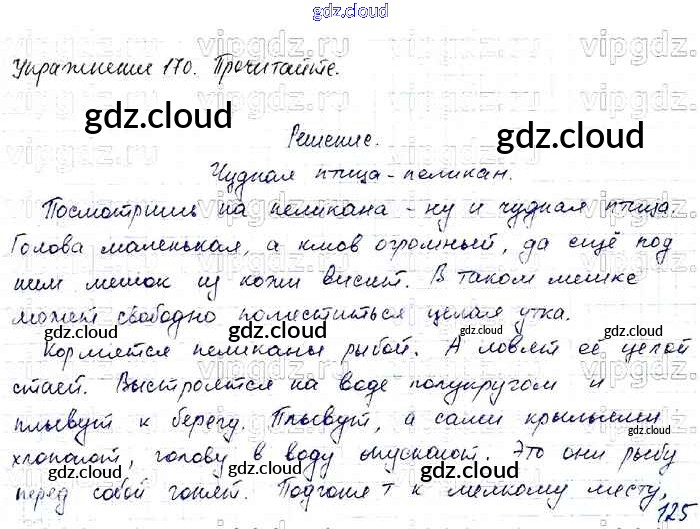 gdz.cloud
Упражнение 170. Прочитайте.
gdz.cloud
gdz.cloud
Решение.
Чудная птица - пеликан.
Посмотришь на пеликана - ну и чудная птица.
Голова маленькая, а клюв огромный, да ещё под
ним мешок из кожи висит. В таком мешке
может свободно поместиться целая утка.
gdz.cloud gdz.cloud gdz.cloud gdz.cloud
Кормятся пеликаны рыбой. А ловят её целой
стаей. Выстроятся на воде полукругом и
плывут к берегу. Плывут, а сами крыльями
gdz.cloud gdz.cloud gdz.cloud
хлопают, голову в воду опускают. Это они рыбу
gdz.cloud gdz.cloud gdz.cloud
перед собой гонят. Подгонят к мелкому месту,
125